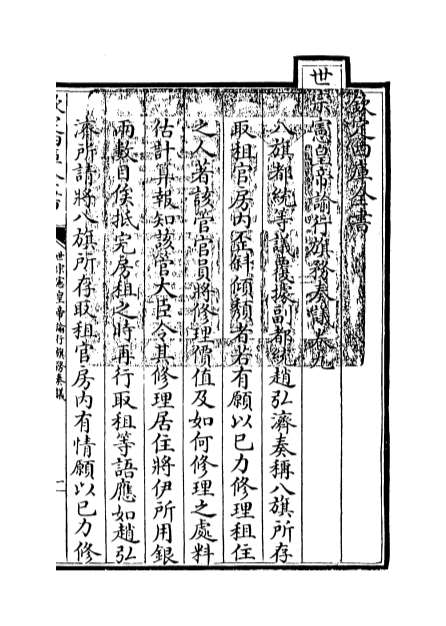 欽定四庫全書
世宗憲皇帝諭行旗務奏議卷九
八旗都統等議覆據副都統趙弘濟奏稱八旗所存
取租官房內歪斜傾頽者若有願以已力修理租住
之人著該管官員將修理價值及如何修理之處料
估計算報知該管大臣令其修理居住將伊所用銀
兩數目俟抵完房租之時再行取租等語應如趙弘
濟所請將八旗所存取租官房內有情願以已力修
欽定四庫全書
世宗憲皇帝諭行旗務奏議